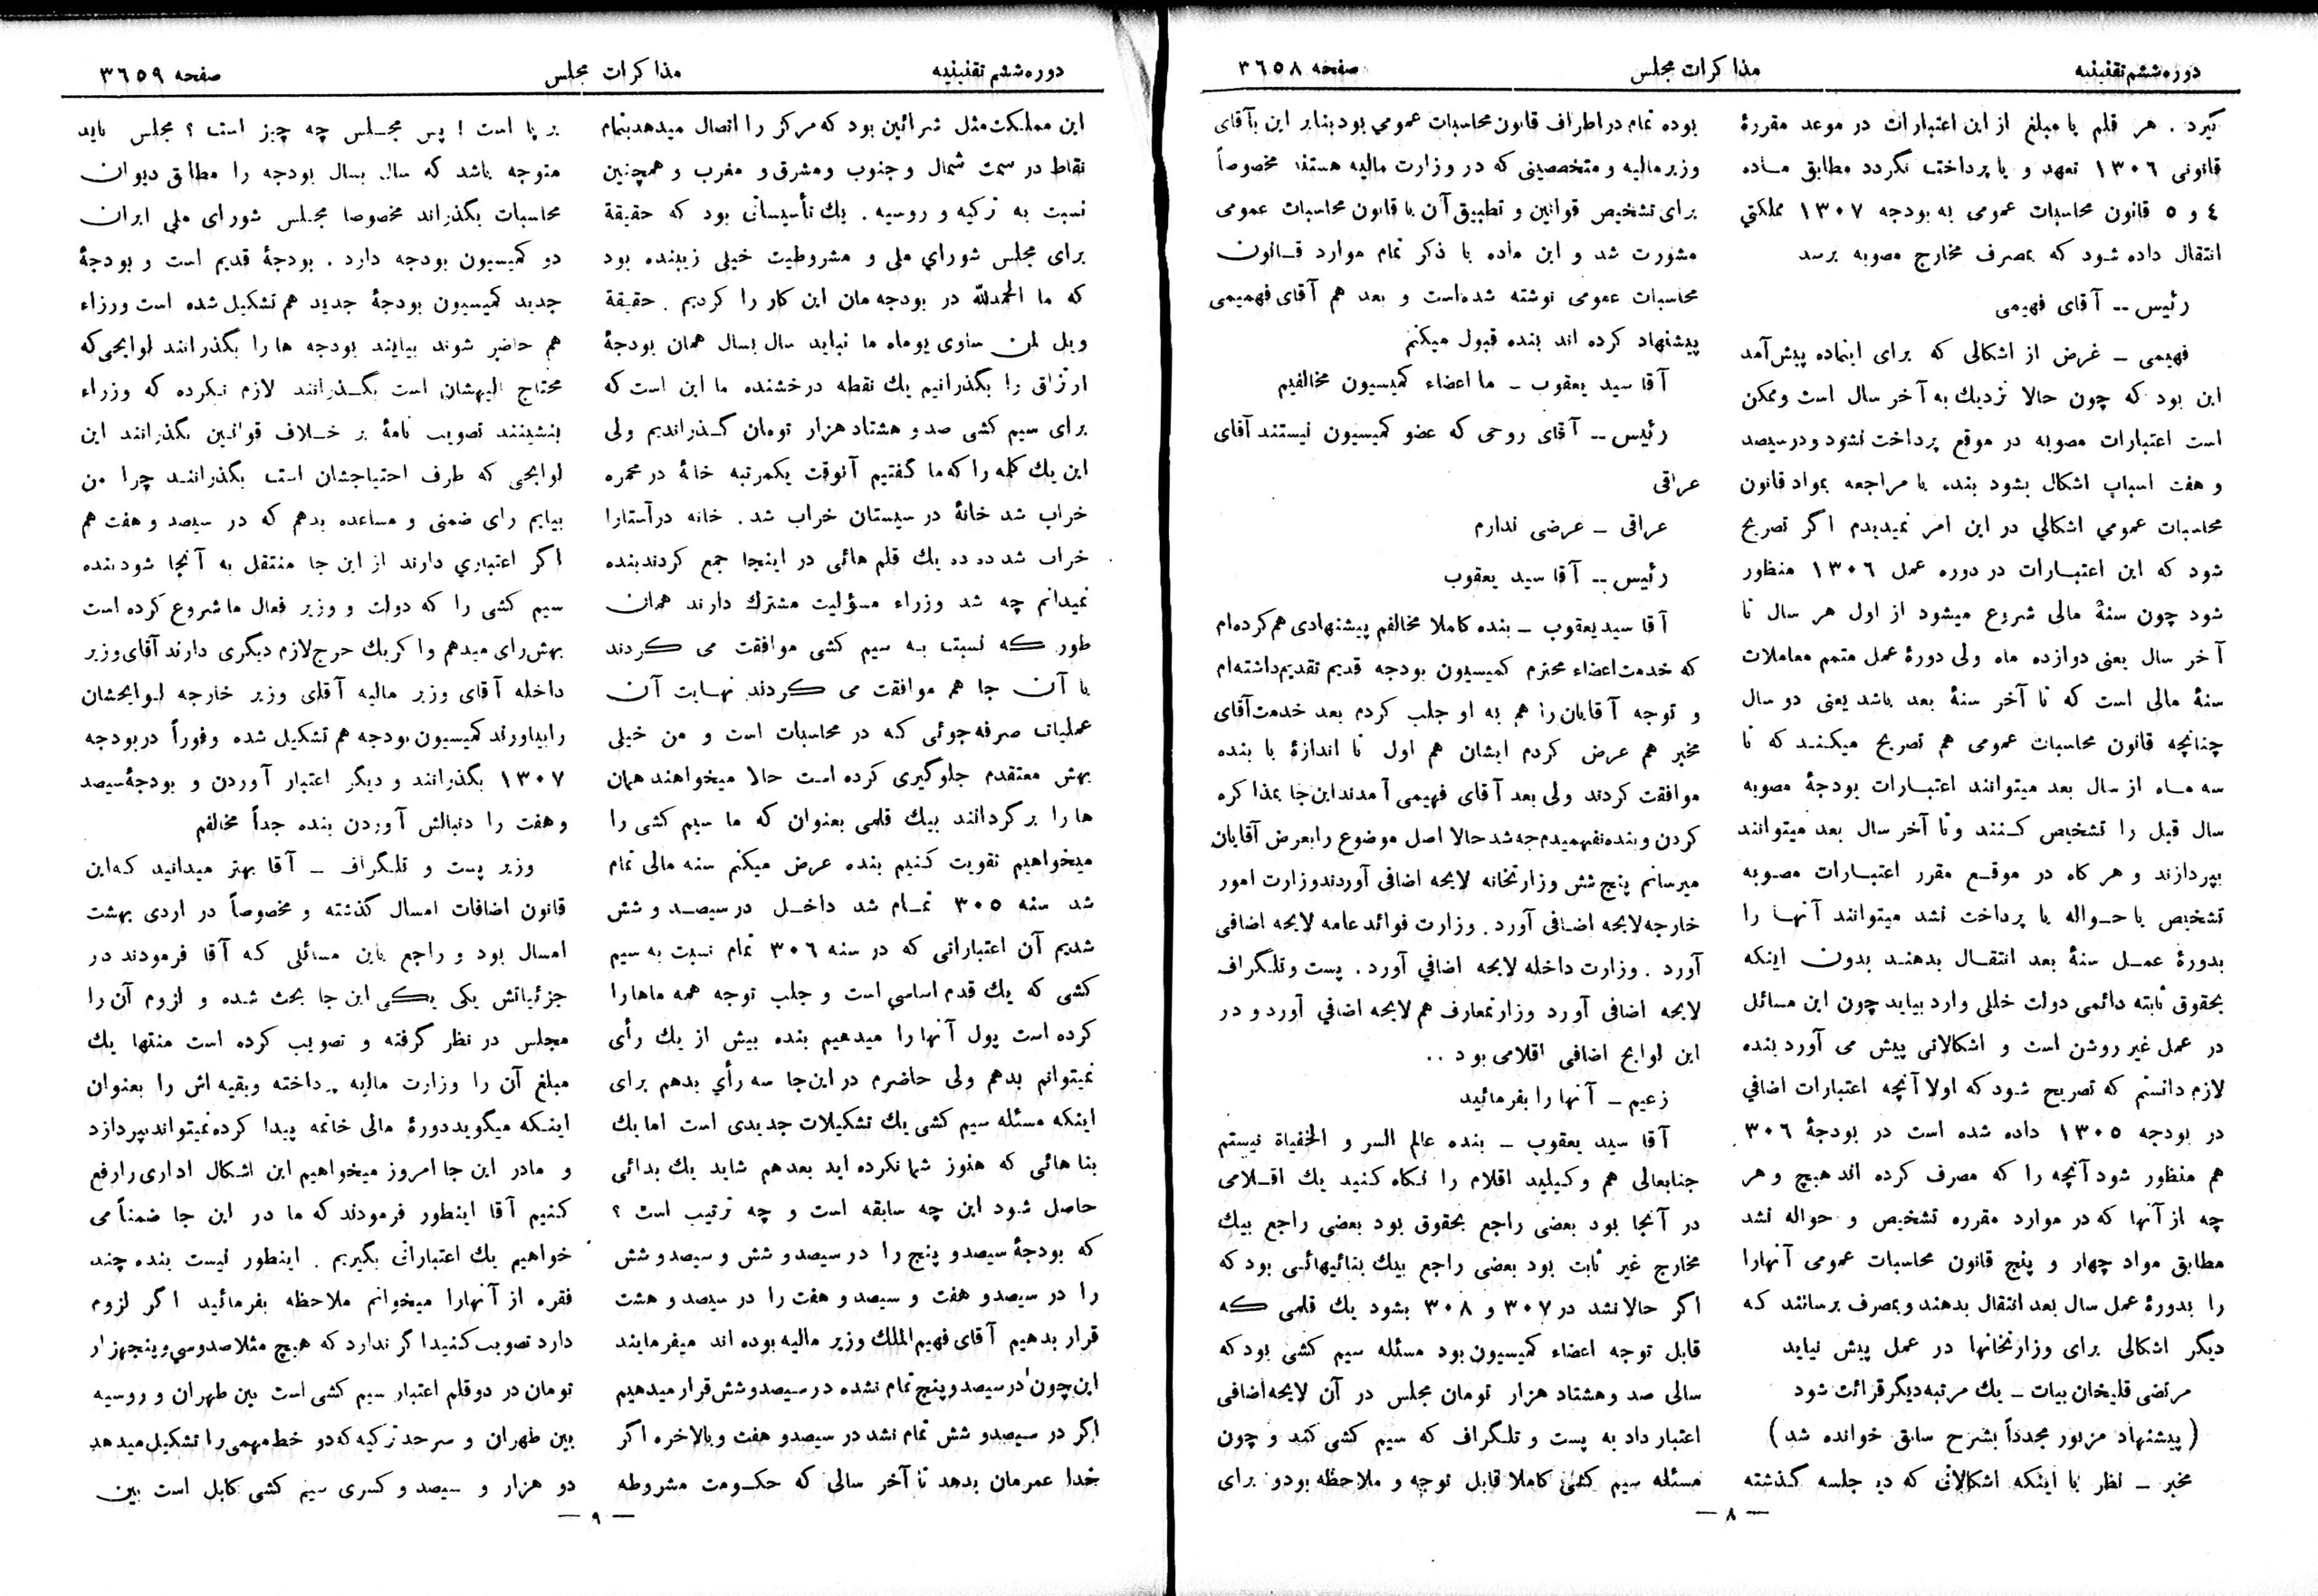 دوره ششم تقنینیه
مذاکرات مجلس
صفحه ٣٦٥٨
گیرد . هر قلم یا مبلغ از این اعتبارات در موعد مقررۀ
قانونی ١٣٠٦ تعهد و یا پرداخت نگردد مطابق ماده
٤ و ٥ قانون محاسبات عمومی به بودجه ١٣٠٧ مملکتی
انتقال داده شود که بمصرف مخارج مصوبه برسد
رئیس -- آقای فهیمی
فهیمی - غرض از اشکالی که برای اینماده پیش آمد
این بود که چون حالا نزدیك به آخر سال است وممکن
است اعتبارات مصوبه در موقع پرداخت نشود و در سیصد
و هفت اسباب اشکال بشود بنده با مراجعه بمواد قانون
محاسبات عمومي اشکالي در این امر نمیدیدم اگر تصریح
شود که این اعتبارات در دوره عمل ١٣٠٦ منظور
شود چون سنۀ مالی شروع میشود از اول هر سال تا
آخر سال یعنی دوازده ماه ولی دورۀ عمل متمم معاملات
سنۀ مالی است که تا آخر سنۀ بعد باشد یعنی دو سال
چنانچه قانون محاسبات عمومی هم تصریح میکند که تا
سه ماه از سال بعد میتوانند اعتبارات بودجۀ مصوبه
سال قبل را تشخیص کنند و تا آخر سال بعد میتوانند
بپردازند و هر گاه در موقع مقرر اعتبارات مصوبه
تشخیص یا حواله یا پرداخت نشد میتوانند آنها را
بدورۀ عمل سنۀ بعد انتقال بدهند بدون اینکه
بحقوق ثابته دائمی دولت خللی وارد بیاید چون این مسائل
در عمل غیر روشن است و اشکالاتی پیش می آورد بنده
لازم دانستم که تصریح شود که اولا آنچه اعتبارات اضافي
در بودجه ١٣٠٥ داده شده است در بودجۀ ٣٠٦
هم منظور شود آنچه را که مصرف کرده اند هیچ و هر
چه از آنها که در موارد مقرره تشخیص و حواله نشد
مطابق مواد چهار و پنج قانون محاسبات عمومی آنهارا
را بدورۀ عمل سال بعد انتقال بدهند و بمصرف برسانند که
دیگر اشکالی برای وزارتخانها در عمل پیش نیاید
مرتضی قلیخان بیات - یك مرتبه دیگر قرائت شود
( پیشنهاد مزبور مجدداً بشرح سابق خوانده شد )
مخبر - نظر با اینکه اشکالاتی که در جلسه گذشته
بوده تمام در اطراف قانون محاسبات عمومي بود بنابر این باآقای
وزیر مالیه و متخصصینی که در وزارت مالیه هستند مخصوصاً
برای تشخیص قوانین و تطبیق آن با قانون محاسبات عمومی
مشورت شد و این ماده با ذکر تمام موارد قانون
محاسبات عمومی نوشته شده است و بعد هم آقای فهیمی
پیشنهاد کرده اند بنده قبول میکنم
آقا سید یعقوب - ما اعضاء کمیسیون مخالفیم
رئیس -- آقای روحی که عضو کمیسیون نیستند آقای
عراقی
عراقی - عرضی ندارم
رئیس -- آقا سید یعقوب
آقا سید یعقوب - بنده کاملا مخالفم پیشنهادی هم کرده ام
که خدمت اعضاء محترم کمیسیون بودجه قدیم تقدیم داشته ام
و توجه آقایان را هم به او جلب کردم بعد خدمت آقای
مخبر هم عرض کردم ایشان هم اول تا اندازۀ با بنده
موافقت کردند ولی بعد آقای فهیمی آمدند این جا بمذاکره
کردن و بنده نفهمیدم چه شد حالا اصل موضوع را بعرض آقایان
میرسانم پنج شش وزارتخانه لایحه اضافی آوردند وزارت امور
خارجه لایحه اضافی آورد . وزارت فوائد عامه لایحه اضافی
آورد . وزارت داخله لایحه اضافي آورد . پست و تلگراف
لایحه اضافی آورد وزارتمعارف هم لایحه اضافي آورد و در
این لوایح اضافی اقلامی بود ..
زعیم - آنها را بفرمائید
آقا سید یعقوب - بنده عالم السر و الخفیاة نیستم
جنابعالی هم وکیلید اقلام را نگاه کنید یك اقلامی
در آنجا بود بعضی راجع بحقوق بود بعضی راجع بیك
مخارج غیر ثابت بود بعضی راجع بیك بنائیهائی بود که
اگر حالا نشد در ٣٠٧ و ٣٠٨ بشود یك قلمی که
قابل توجه اعضاء کمیسیون بود مسئله سیم کشی بود که
سالی صد و هشتاد هزار تومان مجلس در آن لایحه اضافی
اعتبار داد به پست و تلگراف که سیم کشی کند و چون
مسئله سیم کشی کاملا قابل توجه و ملاحظه بود و برای
— ٨ —
دوره ششم تقنینیه
مذاکرات مجلس
صفحه ٣٦٥٩
این مملکت مثل شرائین بود که مرکز را اتصال میدهد بتمام
نقاط در سمت شمال و جنوب و مشرق و مغرب و همچنین
نسبت به ترکیه و روسیه . یك تأسیساتی بود که حقیقة
برای مجلس شورای ملی و مشروطیت خیلی زیبنده بود
که ما الحمدلله در بودجه مان این کار را کردیم . حقیقة
ویل لمن ساوی یوماه ما نباید سال بسال همان بودجۀ
ارتزاق را بگذرانیم یك نقطه درخشنده ما این است که
برای سیم کشی صد و هشتاد هزار تومان گذراندیم ولی
این یك کلمه را که ما گفتیم آنوقت یکمرتبه خانۀ در محمره
خراب شد خانۀ در سیستان خراب شد . خانه در آستارا
خراب شد ده ده یك قلم هائی در اینجا جمع کردند بنده
نمیدانم چه شد وزراء مسؤلیت مشترك دارند همان
طور که نسبت به سیم کشی موافقت می کردند
با آن جا هم موافقت می کردند نهایت آن
عملیات صرفه جوئی که در محاسبات است و من خیلی
بهش معتقدم جلوگیری کرده است حالا میخواهند همان
ها را برگردانند بیك قلمی بعنوان که ما سیم کشی را
میخواهیم تقویت کنیم بنده عرض میکنم سنه مالی تمام
شد سنه ٣٠٥ تمام شد داخل در سیصد و شش
شدیم آن اعتباراتی که در سنه ٣٠٦ تمام نسبت به سیم
کشی که یك قدم اساسي است و جلب توجه همه ماهارا
کرده است پول آنها را میدهیم بنده بیش از یك رأی
نمیتوانم بدهم ولی حاضرم در این جا سه رأي بدهم برای
اینکه مسئله سیم کشی یك تشکیلات جدیدی است اما یك
بناهائی که هنوز شما نکرده اید بعد هم شاید یك بدائی
حاصل شود این چه سابقه است و چه ترتیب است ؟
که بودجۀ سیصد و پنج را در سیصد و شش و سیصد و شش
را در سیصد و هفت و سیصد و هفت را در سیصد و هشت
قرار بدهیم آقای فهیم الملك وزیر مالیه بوده اند میفرمایند
این چون در سیصد و پنج تمام نشده در سیصد و شش قرار میدهیم
اگر در سیصد و شش تمام نشد در سیصد و هفت و بالاخره اگر
خدا عمرمان بدهد تا آخر سالی که حکومت مشروطه
بر پا است ! پس مجلس چه چیز است ؟ مجلس باید
متوجه باشد که سال بسال بودجه را مطابق دیوان
محاسبات بگذراند مخصوصا مجلس شورای ملی ایران
دو کمیسیون بودجه دارد . بودجۀ قدیم است و بودجۀ
جدید کمیسیون بودجۀ جدید هم تشکیل شده است وزراء
هم حاضر شوند بیایند بودجه ها را بگذرانند لوایحی که
محتاج الیهشان است بگذرانند لازم نکرده که وزراء
بنشینند تصویب نامۀ بر خلاف قوانین بگذرانند این
لوایحی که طرف احتیاجشان است بگذرانند چرا من
بیایم رای ضمنی و مساعده بدهم که در سیصد و هفت هم
اگر اعتباري دارند از این جا منتقل به آنجا شود بنده
سیم کشی را که دولت و وزیر فعال ما شروع کرده است
بهش رای میدهم و اگر یك خرج لازم دیگری دارند آقای وزیر
داخله آقای وزیر مالیه آقای وزیر خارجه لوایحشان
را بیاورند کمیسیون بودجه هم تشکیل شده و فوراً در بودجه
١٣٠٧ بگذرانند و دیگر اعتبار آوردن و بودجۀ سیصد
و هفت را دنبالش آوردن بنده جداً مخالفم
وزیر پست و تلگراف - آقا بهتر میدانید که این
قانون اضافات امسال گذشته و مخصوصاً در اردی بهشت
امسال بود و راجع باین مسائلی که آقا فرمودند در
جزئیاتش یکی یکی این جا بحث شده و لزوم آن را
مجلس در نظر گرفته و تصویب کرده است منتها یك
مبلغ آن را وزارت مالیه پرداخته و بقیه اش را بعنوان
اینکه میگوید دورۀ مالی خاتمه پیدا کرده نمیتواند بپردازد
و مادر این جا امروز میخواهیم این اشکال اداری را رفع
کنیم آقا اینطور فرمودند که ما در این جا ضمناً می
خواهیم یك اعتباراتی بگیریم . اینطور نیست بنده چند
فقره از آنهارا میخوانم ملاحظه بفرمائید اگر لزوم
دارد تصویب کنید اگر ندارد که هیچ مثلا صد و سي و پنجهزار
تومان در دو قلم اعتبار سیم کشی است بین طهران و روسیه
بین طهران و سرحد ترکیه که دو خط مهمی را تشکیل میدهد
دو هزار و سیصد و کسری سیم کشی کابل است بین
— ٩ —